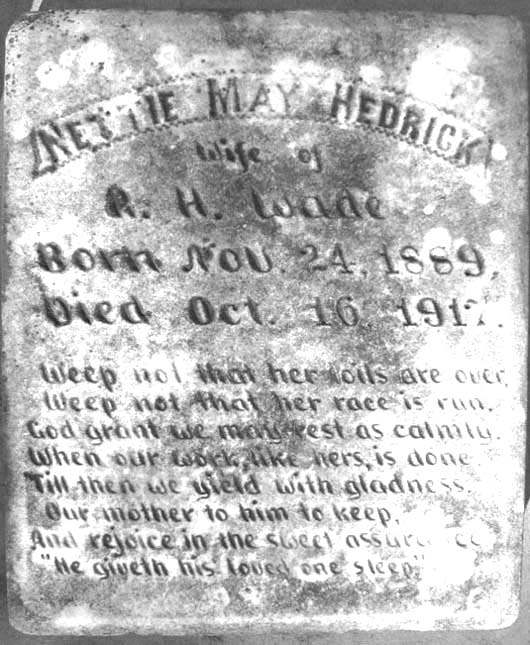 NETTIE MAY HEDRICK
Wife of
R. H. Wade
Born Nov. 24, 1889.
Died Oct. 16, 1917.
Weep not that her toils are over,
Weep not that her race is run.
God grant we may rest as calmly.
When our work, like hers, is done.
Till then we yield with gladness.
Our mother to him to keep,
And rejoice in the sweet assurance
"He giveth his loved one sleep."